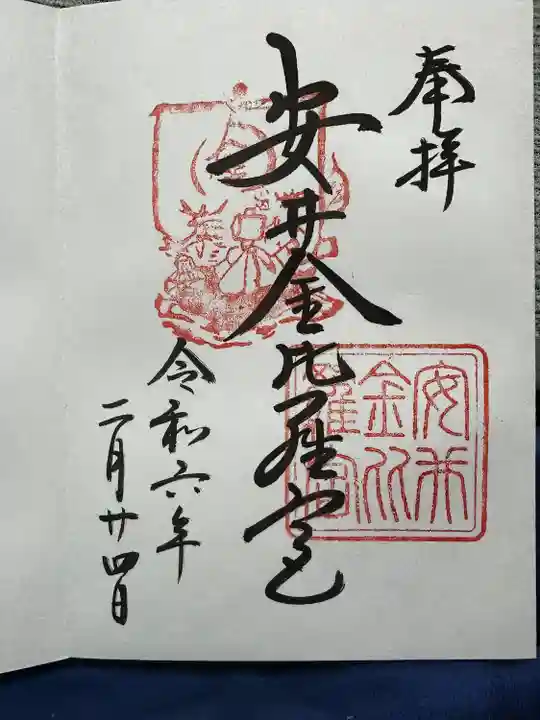 奉拝
安井金比羅宮
安井
金比
羅宮
令和六年
二月廿四日